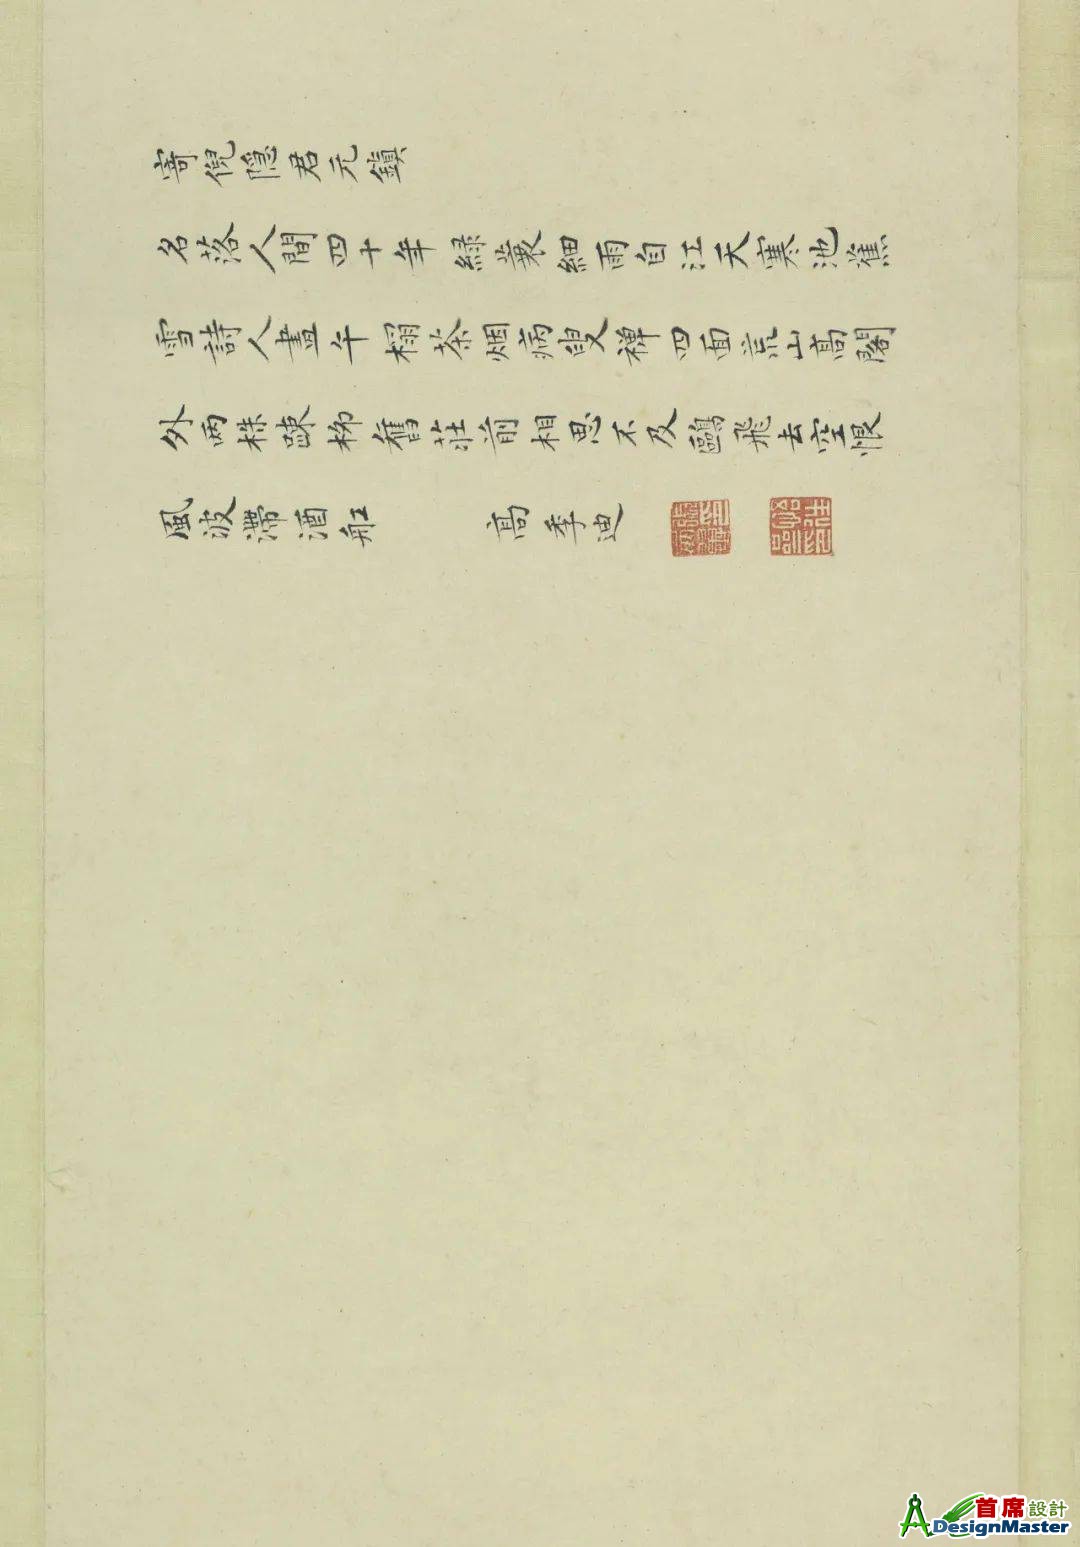 寄倪隐君元鎮
名落人間四十年緑蓑細雨自江天寒池蕉
雪詩人畫午榻茶烟病叟禅四面荒山髙閣
外两株踈栁舊莊前相思不及鷗飛去空恨
風波滯酒舡　髙季迪
首席設計
DesignMaster